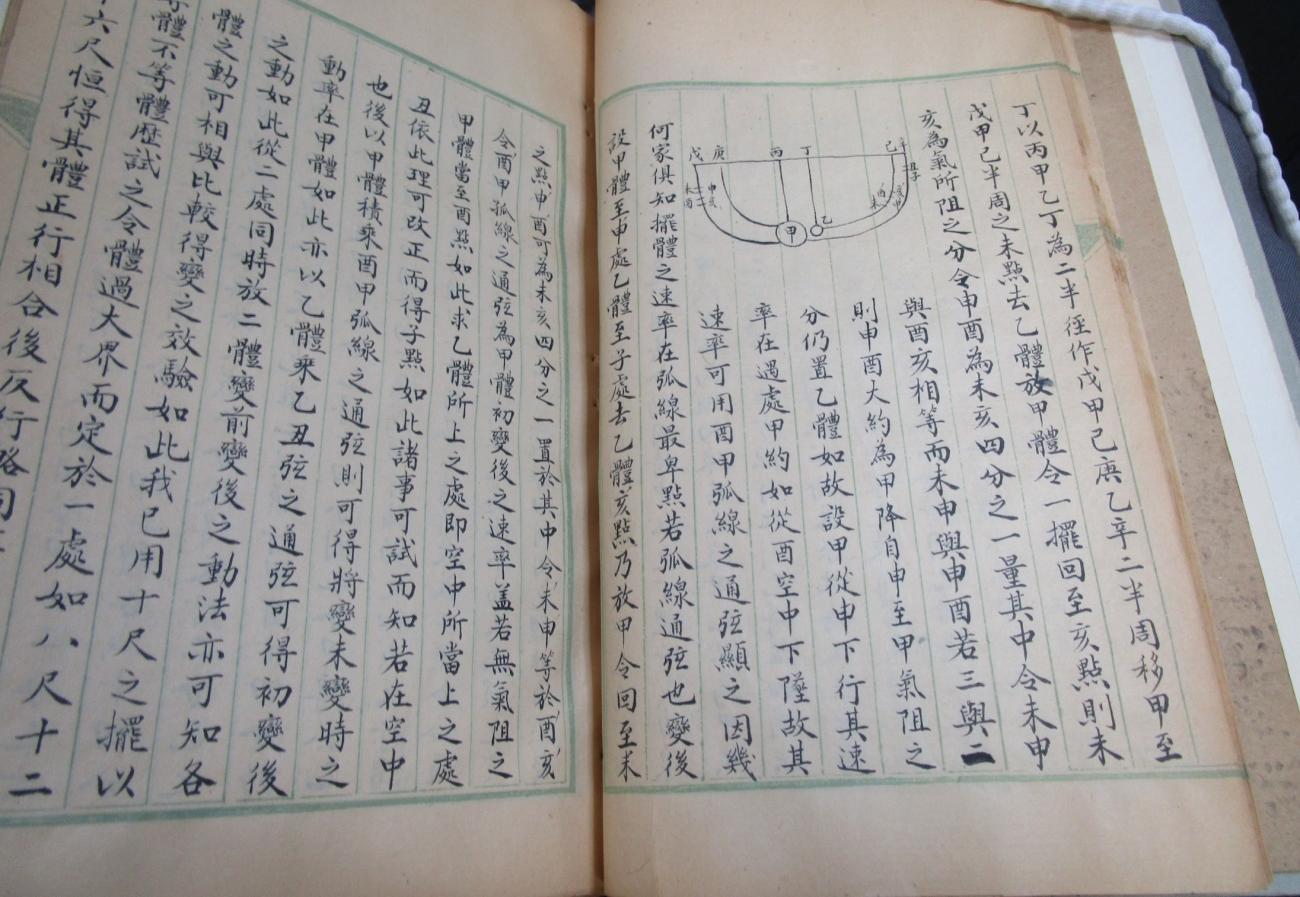 丁以丙甲乙丁為二半徑作戊甲己庚乙辛二半周移甲至
戊甲己半周之未點去乙體放甲體令一擺回至亥點則未
亥為氣所阻之分令申酉為未亥四分之一量其中令未申
與酉亥相等而未申與申酉若三與二
則申酉大約為甲降自申至甲氣阻之
分仍置乙體如故設甲從申下行其速
率在遇處甲約如從酉空中下墜故其
速率可用酉甲弧線之通弦顯之因幾
戊 庚 丙 丁 己 辛
甲 乙
何家俱知擺體之速率在弧線最卑點若弧線通弦也變後
設甲體至申處乙體至子處去乙體亥點乃放甲令回至未
之點申酉可為未亥四分之一置於其中令未申等於酉亥
令酉甲弧線之通弦為甲體初變後之速率盖若無氣阻之
甲體當至酉點如此求乙體所上之處即空中所當上之處
丑依此理可改正而得子點如此諸事可試而知若在空中
也後以甲體積乘酉甲弧線之通弦則可得將變未變時之
動率在甲體如此亦以乙體乘乙丑弦之通弦可得初變後
之動如此從二處同時放二體變前變後之動法亦可知各
體之動可相與比較得變之效驗如此我已用十尺之擺以
等體不等體歷試之令體過大界而定於一處如八尺十二
十六尺恒得其體正行相合後反行略同